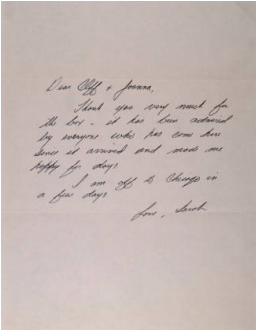 Dear Cliff & Joanna,
Thank you very much for
the box - it has been admired
by everyone who has come here
since it arrived and made me
happy for days.
I am off to Chicago in
a few days.
Love, Sarah